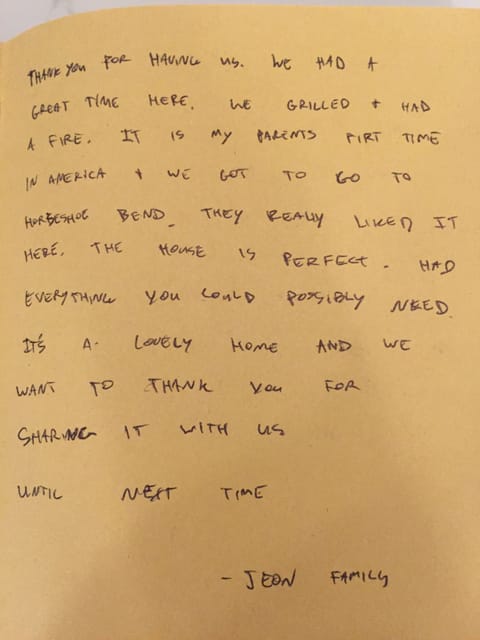 THANK YOU FOR HAVING US. WE HAD A
GREAT TIME HERE. WE GRILLED + HAD
A FIRE. IT IS MY PARENTS FIRT TIME
IN AMERICA + WE GOT TO GO TO
HORSESHOE BEND. THEY REALLY LIKED IT
HERE. THE HOUSE IS PERFECT. HAD
EVERYTHING YOU COULD POSSIBLY NEED.
IT'S A LOVELY HOME AND WE
WANT TO THANK YOU FOR
SHARING IT WITH US
UNTIL NEXT TIME
- JEON FAMILY